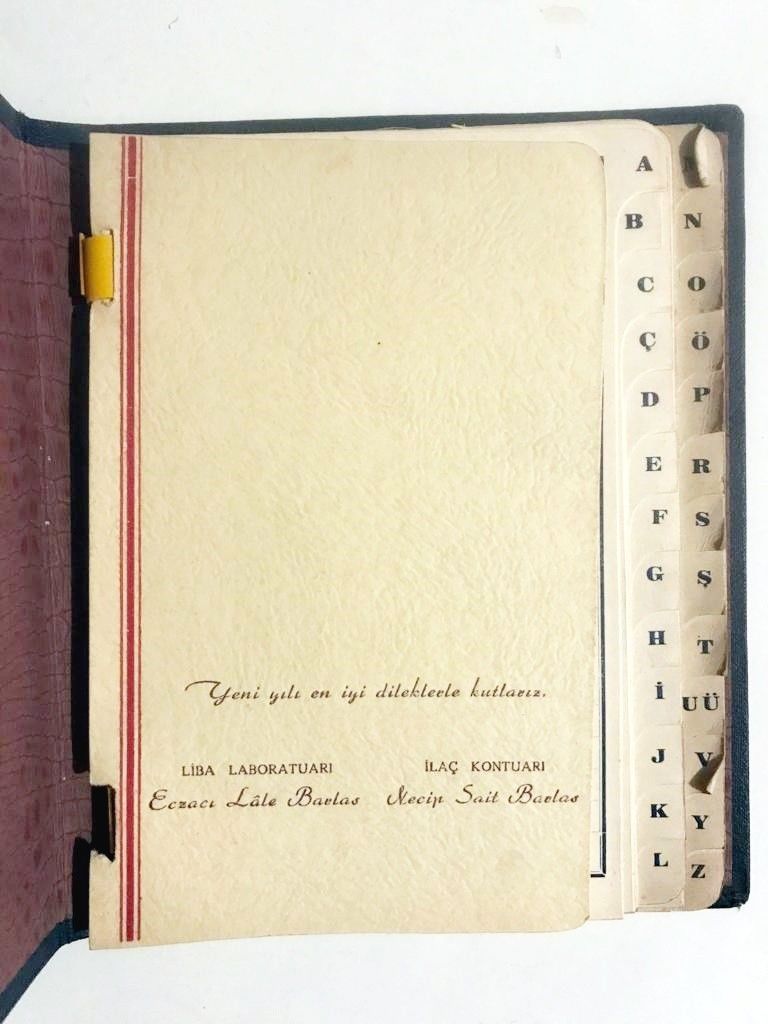 Yeni yılı en iyi dileklerle kutlarız.
LİBA LABORATUARI
Eczacı Lâle Barlas
İLAÇ KONTUARI
Necip Sait Barlas
A
B
C
Ç
D
E
F
G
H
İ
J
K
L
N
O
Ö
P
R
S
Ş
T
UÜ
V
Y
Z